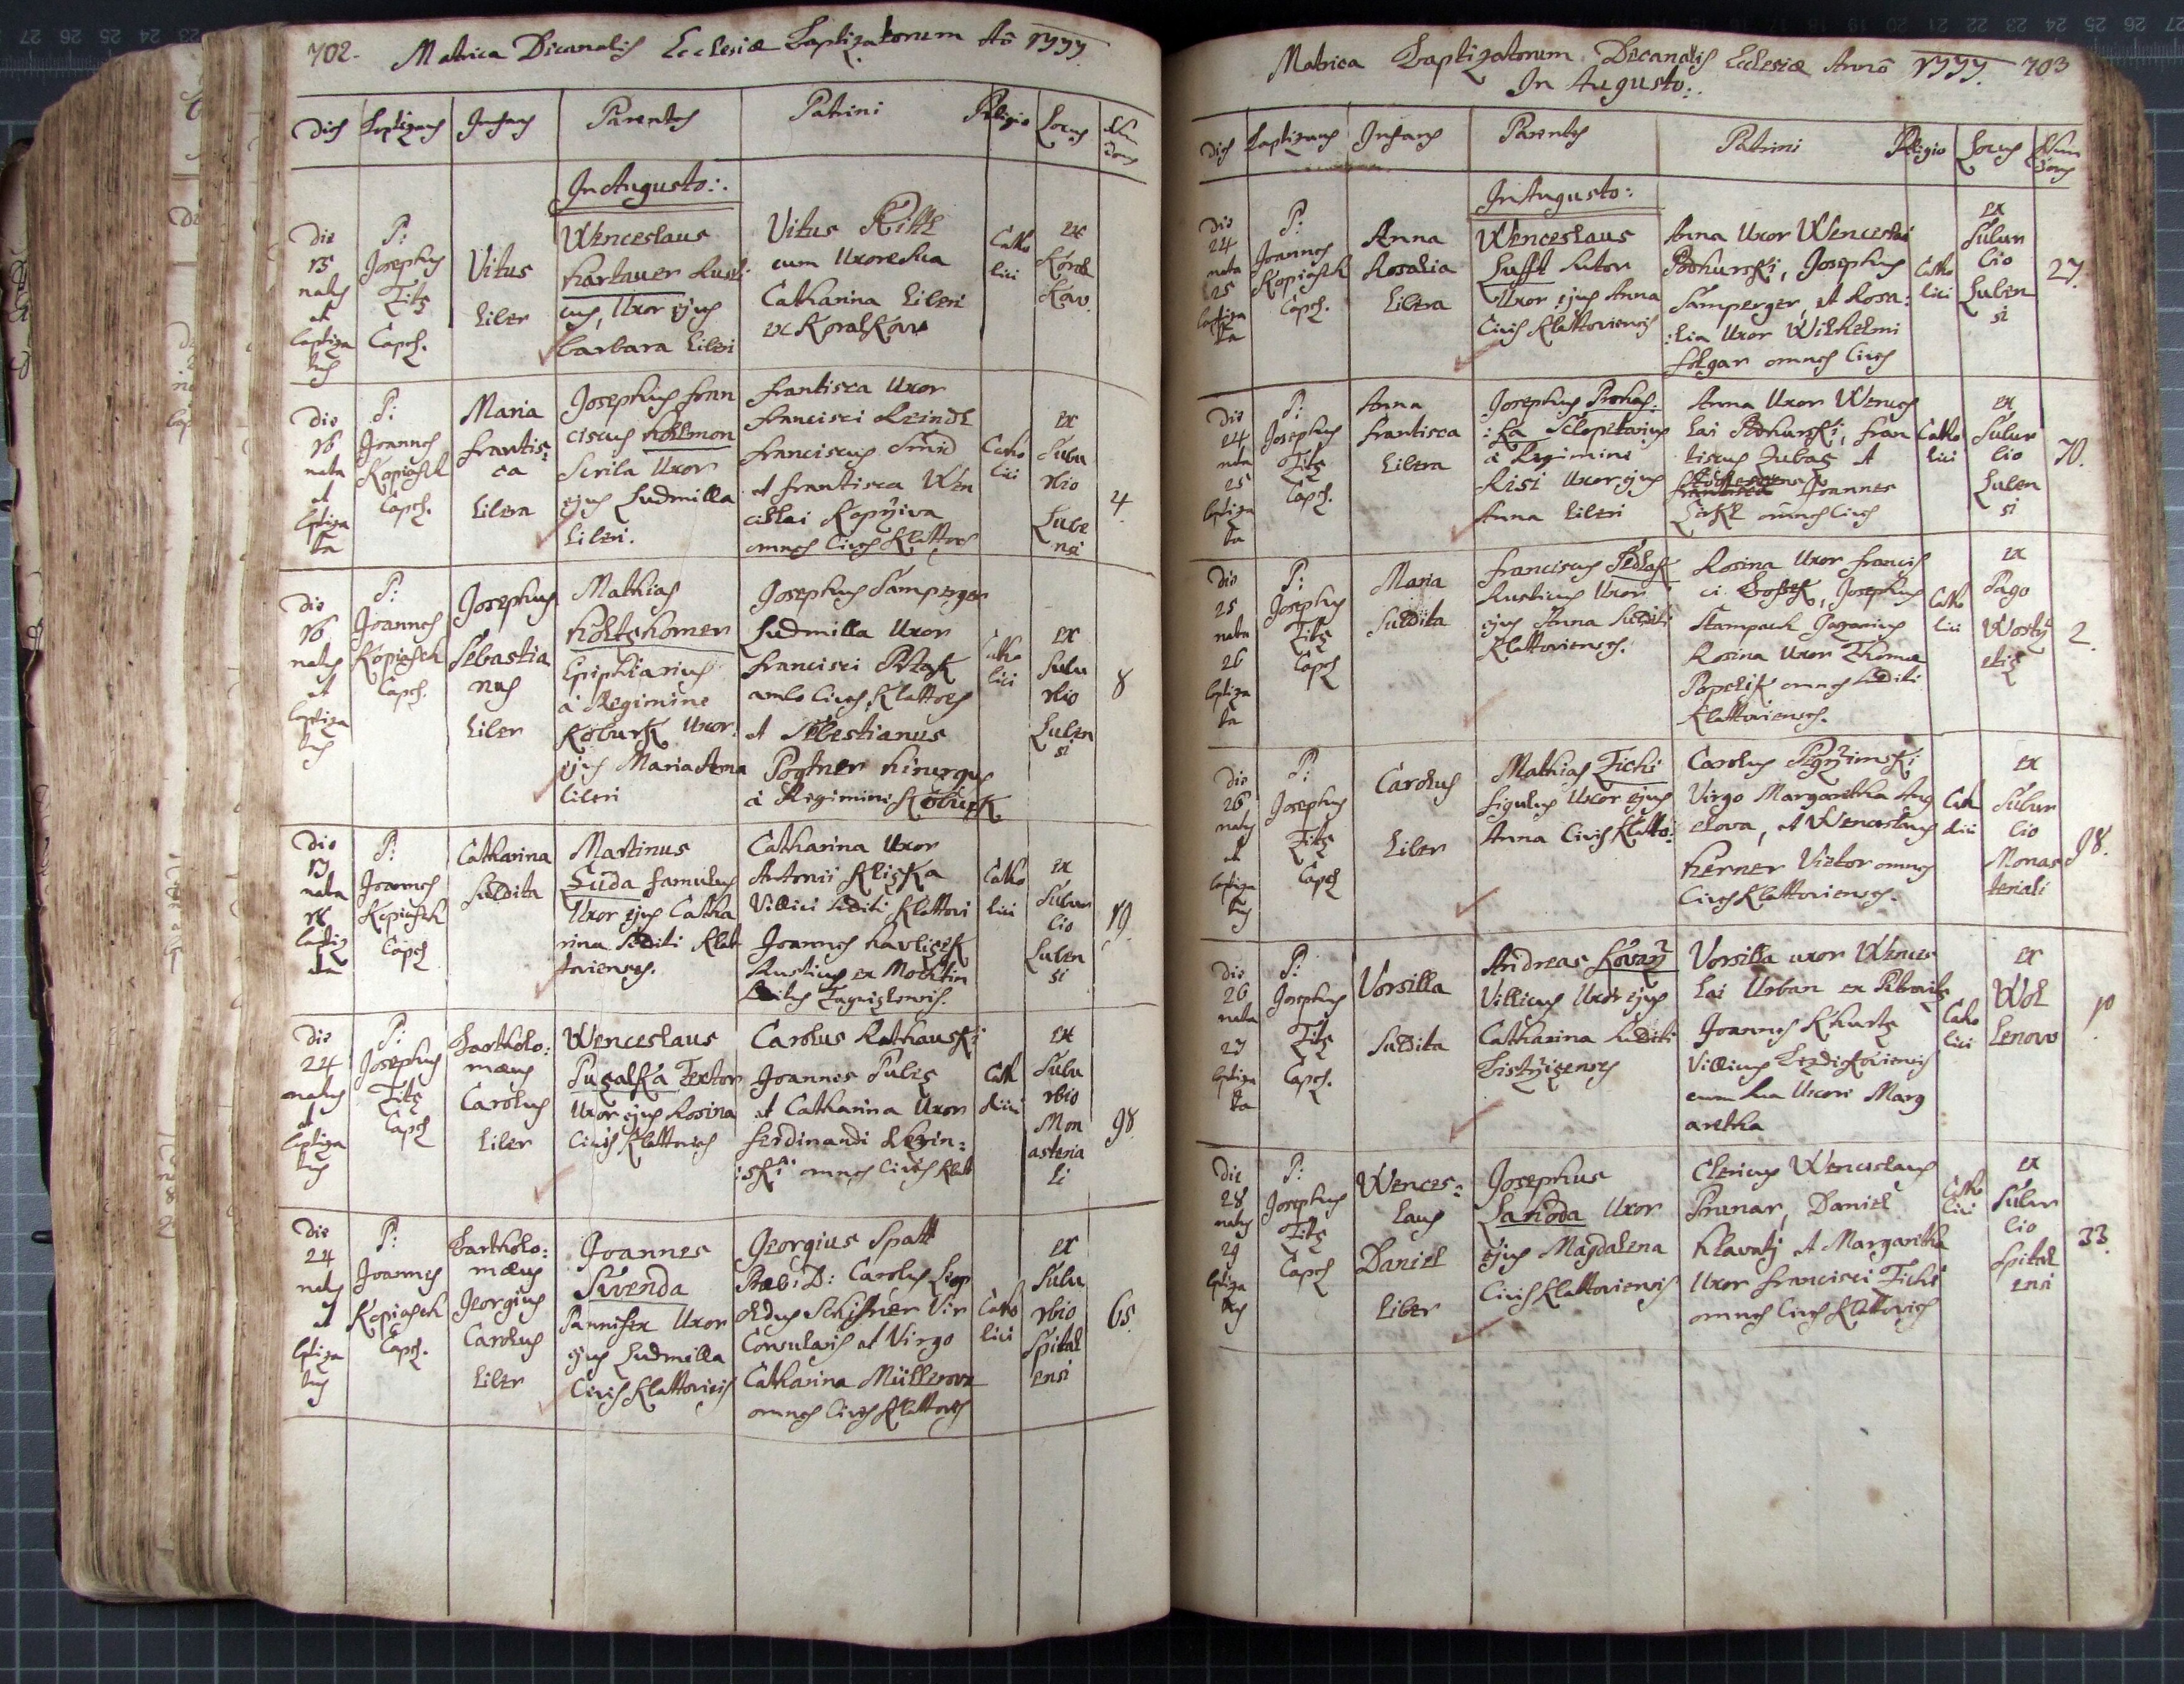 702. Matrica Decanalis Ecclesiæ Baptizatorum Aō 1777
Dies Baptizans Infans Parentes Patrini Religio Locus
In Augusto:
Die 15 natus et baptizatus
P: Josephus Titz Capel.
Vitus Liber
Wenceslaus
Hartauer Rusti
cus, Uxor ejus
Barbara Liberi
Vitus
cum Uxore Sua
Catharina Liberi
ex Koralkow
Catho
lici
ex
Koral
kow
Die 16 nata et baptizata
P: Joannes Kopiasch Capel.
Maria
Frantis:
ca
Libera
Josephus Fran
ciscus
Scriba Uxor
ejus Ludmilla
Liberi.
Frantisca Uxor
Francisci Reindl
Franciscus Smid
et Frantisca Wen
ceslai Koprživa
omnes Cives Klattov
Catho
lici
ex
Subu
rbio
Lube
nsi
4.
Die 16 natus et baptizatus
P: Joannes Kopiasch Capel.
Josephus
Sebastia
nus
Liber
Mathias
Holtzhomer
Ephippiarius
à Regimine
Koburk Uxor
ejus Maria Anna
Liberi
Josephus Samperger
Ludmilla Uxor
Francisci
ambo Cives Klattov
et Sebestianus
Pogtner Hirurgus
à Regimini Koburk
Catho
lici
ex
Subu
rbio
Luben
si
8
Die 17 nata 18 baptizata
P: Joannes Kopiasch Capel
Catharina
Subdita
Martinus
Suda Famulus
Uxor ejus Catha
rina Subditi Klat
toviensis.
Catharina Uxor
Antonii Kliczka
Villici Subditi Klattovi
Joannes Havliczek
Rusticus ex Mochtin
Catho
lici
ex
Subur
bio
Luben
si
19
Die 24 natus et baptizatus
P: Josephus Titz Capel
Bartholo:
mæus
Carolus
Liber
Wenceslaus
Puczalka Textor
Uxor ejus Rosina
Cives Klattovies
Carolus Rathauski
Joannes Pubecz
et Catharina Uxor
Ferdinandi
:ski omnes Cives Klatt
Cath
olici
ex
Subu
rbio
Mon
asteria
li
98
Die 24 natus et baptizatus
P: Joannes Kopiasch Capel.
Bartholo:
mæus
Georgius
Carolus
Liber
Joannes
Swenda
Pannifex Uxor
ejus Ludmilla
Cives Klattovies
Georgius Spatt
D: Carolus Leop
oldus Schiffner Vir
Consularis et Virgo
Catharina Müllerova
omnes Cives Klattov
Catho
lici
ex
Subu
rbio
Spital
ensi
65.
Matrica Baptizatorum Decanalis Ecclesiæ Annō 1777. 703
In Augusto:
Dies Baptizans Infans Parentes Patrini Religio Locus
In Augusto:
Die 24 nata 25 baptizata
P: Joannes Kopiasch Capel.
Anna
Rosalia
Libera
Wenceslaus
Lufft Sutor
Uxor ejus Anna
Cives Klattoviensis
Anna Uxor Wenceslai
Bohurski, Josephus
Samperger, et Rosa:
:lia Uxor Wilhelmi
Folgar omnes Cives
Catho
lici
ex
Subur
bio
Luben
si
27.
Die 24 nata 25 baptizata
P: Josephus Titz Capel.
Anna
Frantisca
Libera
Josephus Prohas:
:ka Sclopetarius
à Regimini
Risi Uxor ejus
Anna Liberi
Anna Uxor Wences
lai Bohurski, Fran
tiscus Zubacz et
Joannes
Zirkl omnes Cives
Catho
lici
ex
Subur
bio
Luben
si
70.
Die 25 nata 26 baptizata
P: Josephus Titz Capel
Maria
Subdita
Franciscus Sedlak
Rusticus Uxor
ejus Anna Subditi
Klattovienses.
Rosina Uxor Francis
ci, Josephus
Stampach
Rosina Uxor Thomæ
Popelik omnes Subditi
Klattovienses.
Catho
lici
ex
Pago
2.
Die 26 natus et baptizatus
P: Josephus Titz Capel
Carolus
Liber
Mathias Tichi
Figulus Uxor ejus
Anna Cives Klatto:
Carolus
Virgo Margaretha Ang
elova, et Wenceslaus
Herner Vietor omnes
Cives Klattovienses.
Cath
olici
ex
Subur
bio
Monas
teriali
98.
Die 26 nata 27 baptizata
P: Josephus Titz Capel.
Vorsilla
Subdita
Andreas Kovarž
Villicus Uxor ejus
Catharina Subditi
Bistržizenses
Vorsilla uxor Wences
lai Urban ex Petrowitz
Joannes Khurtz
Villicus
cum Sua Uxori Marg
aretha
Catho
lici
ex
Wol
lenow
10
Die 28 natus 29 baptizatus
P: Josephus Titz Capel
Wences:
laus
Daniel
Liber
Josephus
Uxor
ejus Magdalena
Cives Klattoviensis
Clericus Wenceslaus
Prunar, Daniel
Hlavatj et Margaritha
Uxor Francisci Tichi
omnes Cives Klattovies
Catho
lici
ex
Subur
bio
Spital
ensi
33.